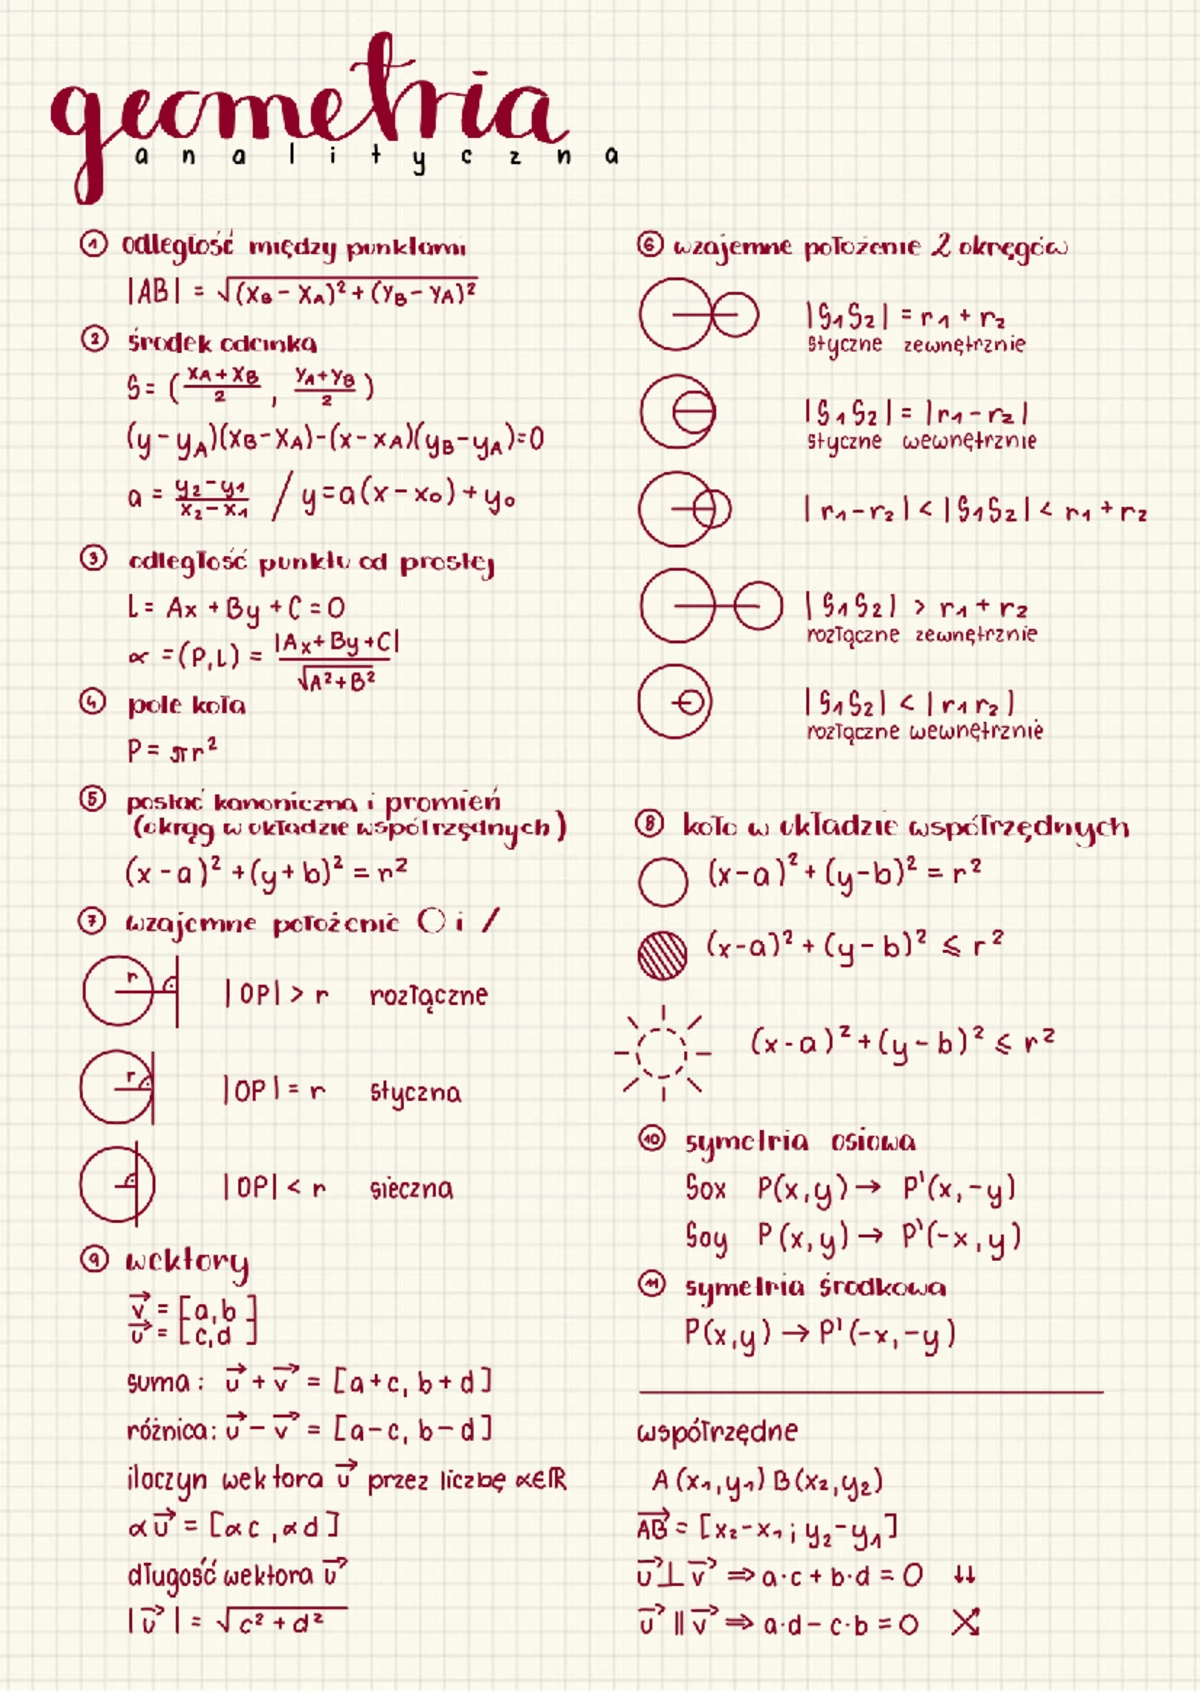 geometria
analityczna
① odległość między punktami
|AB| = √(x_B - x_A)² + (y_B - y_A)²
② środek odcinka
S = (x_A + x_B / 2 , y_A + y_B / 2)
(y - y_A)(x_B - x_A) - (x - x_A)(y_B - y_A) = 0
a = y₂ - y₁ / x₂ - x₁ / y = a(x - x₀) + y₀
③ odległość punktu od prostej
L = Ax + By + C = 0
∝ = (P, L) = |Ax + By + C| / √A² + B²
④ pole koła
P = πr²
⑤ postać kanoniczna i promień
(okrąg w układzie współrzędnych)
(x - a)² + (y + b)² = r²
⑦ wzajemne położenie ○ i /
r |OP| > r rozłączne
r |OP| = r styczna
|OP| < r sieczna
⑨ wektory
v⃗ = [a, b]
u⃗ = [c, d]
suma: u⃗ + v⃗ = [a + c, b + d]
różnica: u⃗ - v⃗ = [a - c, b - d]
iloczyn wektora u⃗ przez liczbę ∝∈ℝ
∝u⃗ = [∝c, ∝d]
długość wektora u⃗
|u⃗| = √c² + d²
⑥ wzajemne położenie 2 okręgów
|S₁S₂| = r₁ + r₂
styczne zewnętrznie
|S₁S₂| = |r₁ - r₂|
styczne wewnętrznie
|r₁ - r₂| < |S₁S₂| < r₁ + r₂
|S₁S₂| > r₁ + r₂
rozłączne zewnętrznie
|S₁S₂| < |r₁ r₂|
rozłączne wewnętrznie
⑧ koło w układzie współrzędnych
(x - a)² + (y - b)² = r²
(x - a)² + (y - b)² ⩽ r²
(x - a)² + (y - b)² ⩽ r²
⑩ symetria osiowa
Sox P(x, y) → P'(x, -y)
Soy P(x, y) → P'(-x, y)
⑪ symetria środkowa
P(x, y) → P'(-x, -y)
współrzędne
A(x₁, y₁) B(x₂, y₂)
AB⃗ = [x₂ - x₁ ; y₂ - y₁]
u⃗ ⊥ v⃗ ⇒ a·c + b·d = 0 ↓↓
u⃗ ∥ v⃗ ⇒ a·d - c·b = 0